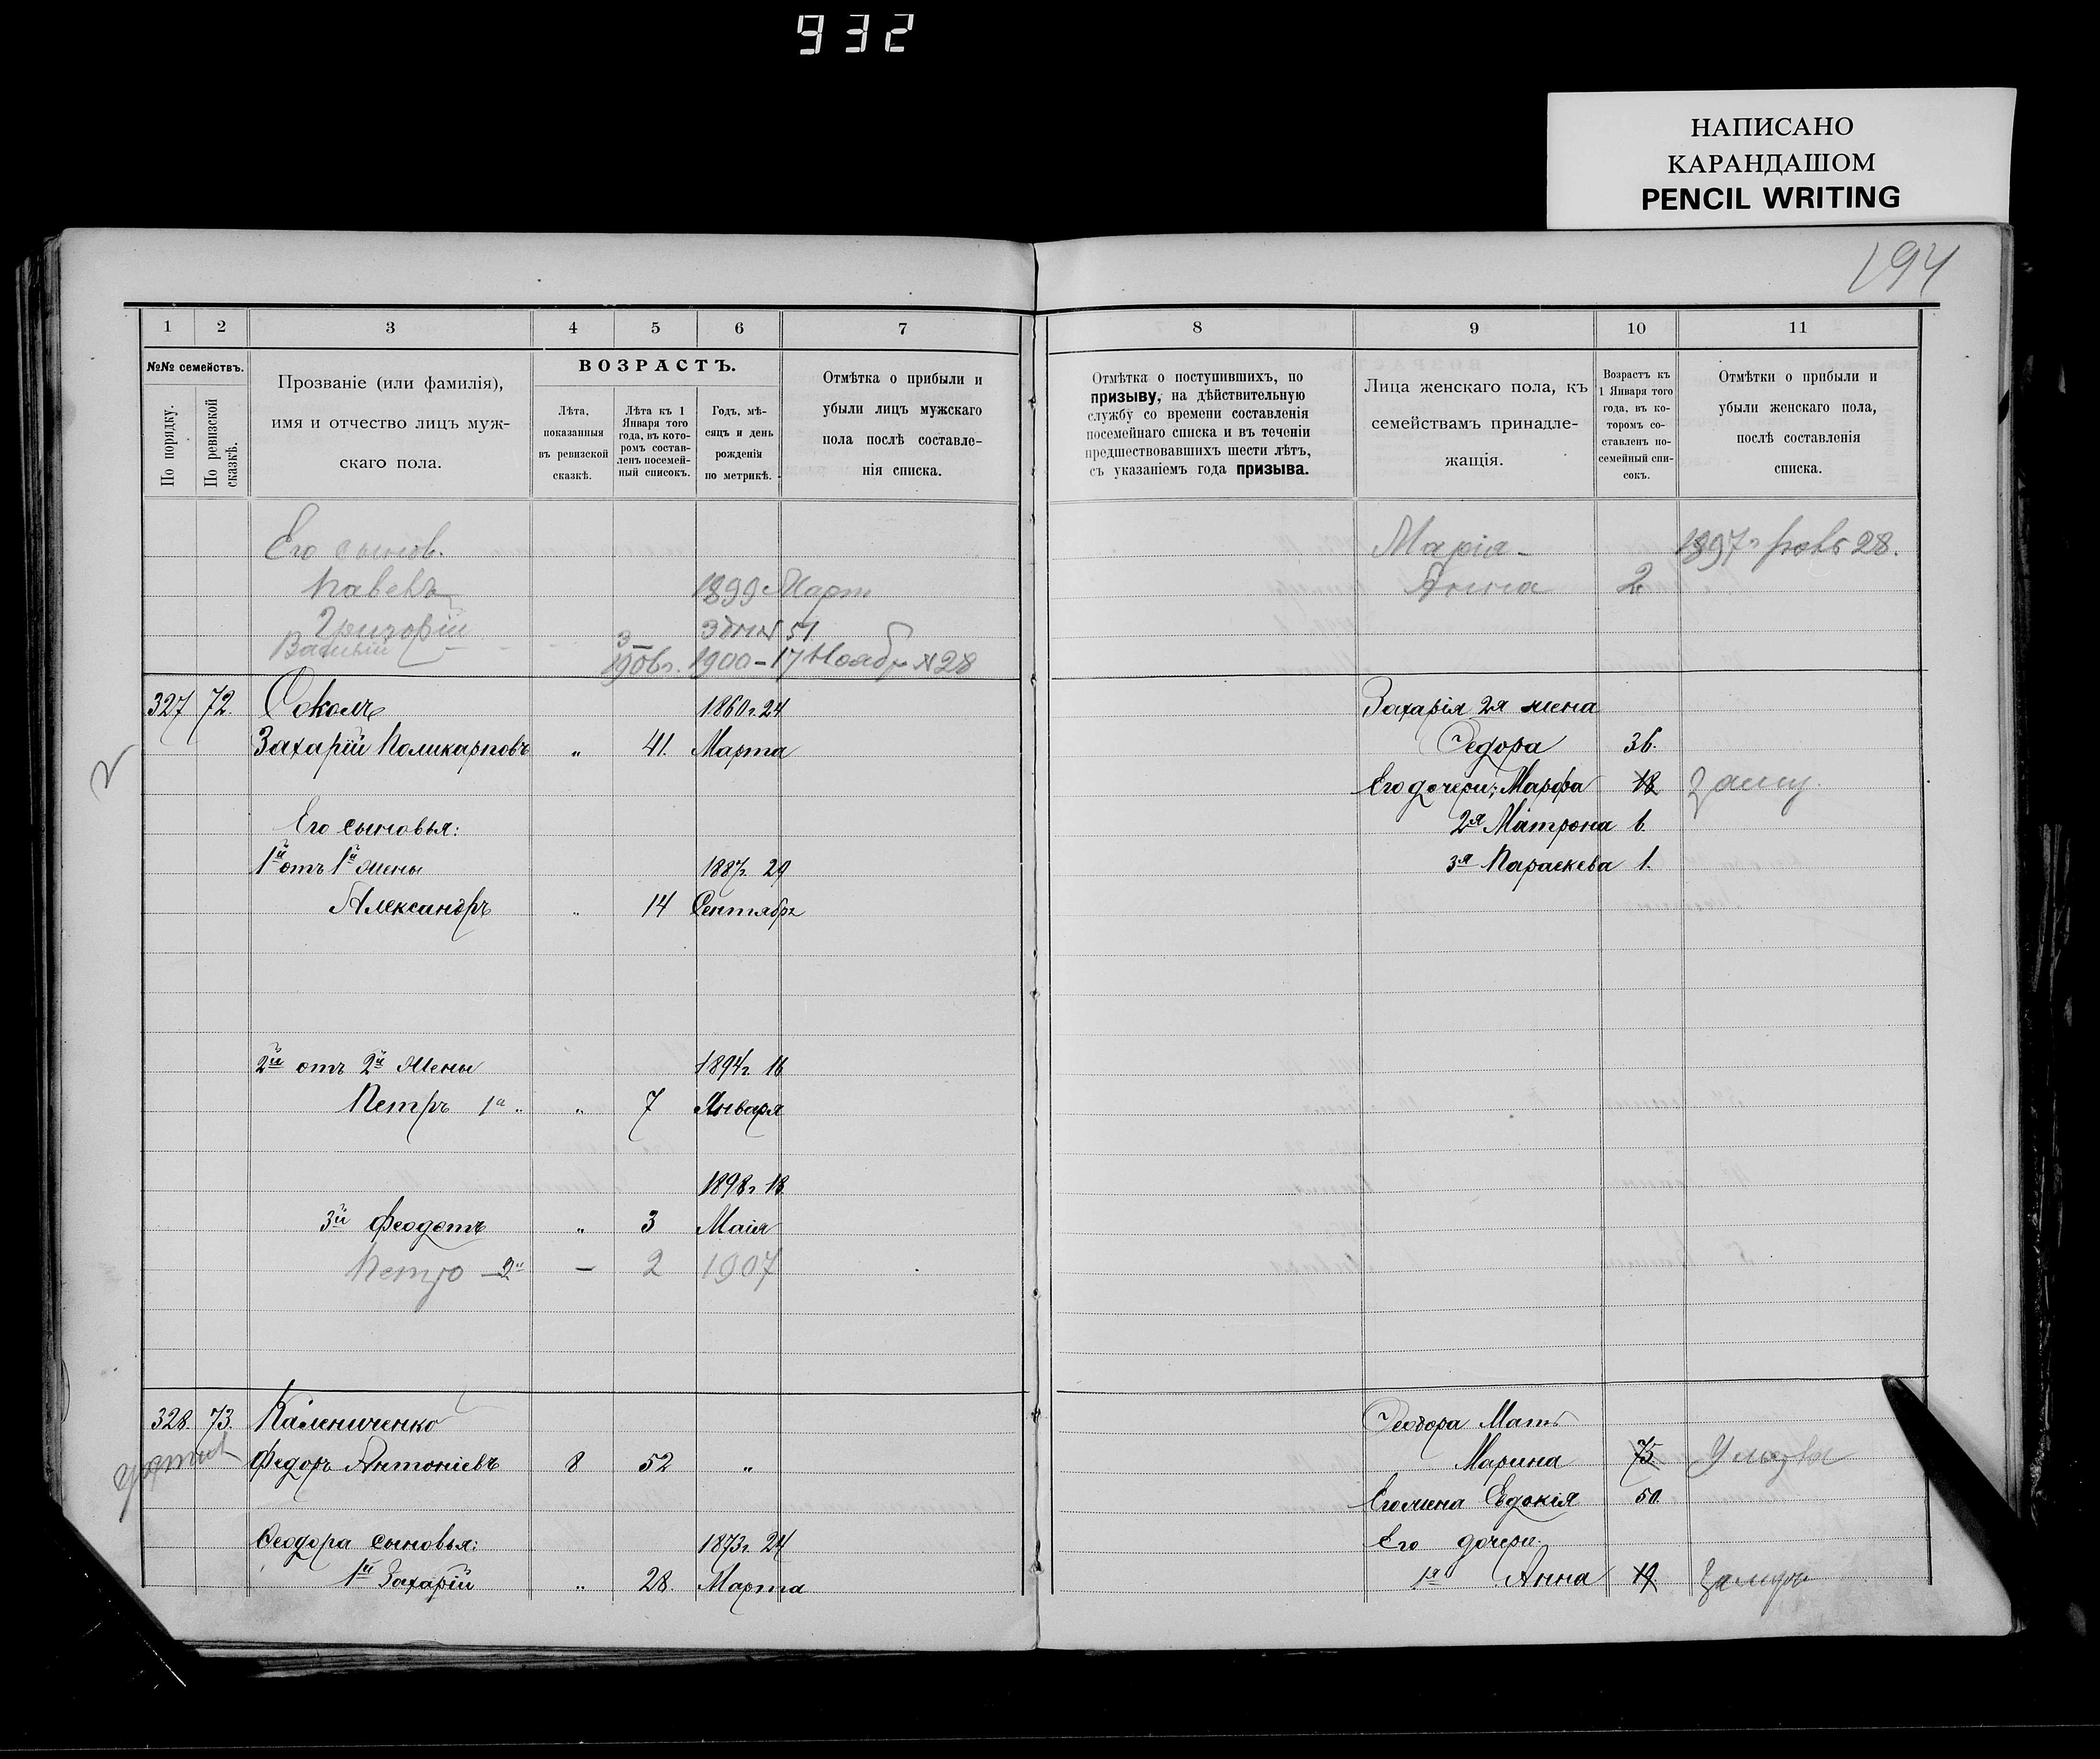 932
НАПИСАНО
КАРАНДАШОМ
PENCIL WRITING
194
1 2 3 4 5 6 7
№№ семействъ.
По порядку.
По ревизской сказкѣ.
Прозваніе (или фамилія),
имя и отчество лицъ муж-
скаго пола.
ВОЗРАСТЪ.
Лѣта,
показанныя
въ ревизской
сказкѣ.
Лѣта къ 1
Января того
года, въ кото-
ромъ состав-
ленъ посемей-
ный списокъ.
Годъ, мѣ-
сяцъ и день
рожденія
по метрикѣ.
Отмѣтка о прибыли и
убыли лицъ мужскаго
пола послѣ составле-
нія списка.
Его сынов.
Павелъ 1899 Март
Григорій 51
Василій 1906г. 1900 - 17 Ноябр № 28
327 72. Соколъ 1860г. 24
Захарій Поликарповъ „ 41. Марта
Его сыновья:
1й отъ 1й жены 1887г. 29
Александръ „ 14 Сентября
2й отъ 2й жены 1894г. 16
Петръ 1й „ „ 7 Января
1898г. 18
3й Феодотъ „ 3 Маія
Петро - 2й — 2 1907
328. 73. Калениченко
Федоръ Антоніевъ 8 52 „
Феодора сыновья: 1873г. 24
1й Захарій „ 28. Марта
8 9 10 11
Отмѣтка о поступившихъ, по
призыву, на дѣйствительную
службу со времени составленія
посемейнаго списка и въ теченіи
предшествовавшихъ шести лѣтъ,
съ указаніемъ года призыва.
Лица женскаго пола, къ
семействамъ принадле-
жащія.
Возрастъ къ
1 Января того
года, въ ко-
торомъ со-
ставленъ по-
семейный спи-
сокъ.
Отмѣтки о прибыли и
убыли женскаго пола,
послѣ составленія
списка.
Марія - 1897г 28.
Анна 2
Захарія 2я жена
Федора 36.
Его дочери: Марфа 18 Замуж.
2я Матрона 6.
3я Параскева 1.
Феодора Мать
Марина 75.
Его жена Евдокія 50.
Его дочери:
1я Анна 19. Замуж